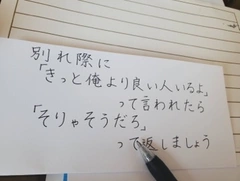 別れ際に
「きっと俺より良い人いるよ」
って言われたら
「そりゃそうだろ」
って返しましょう